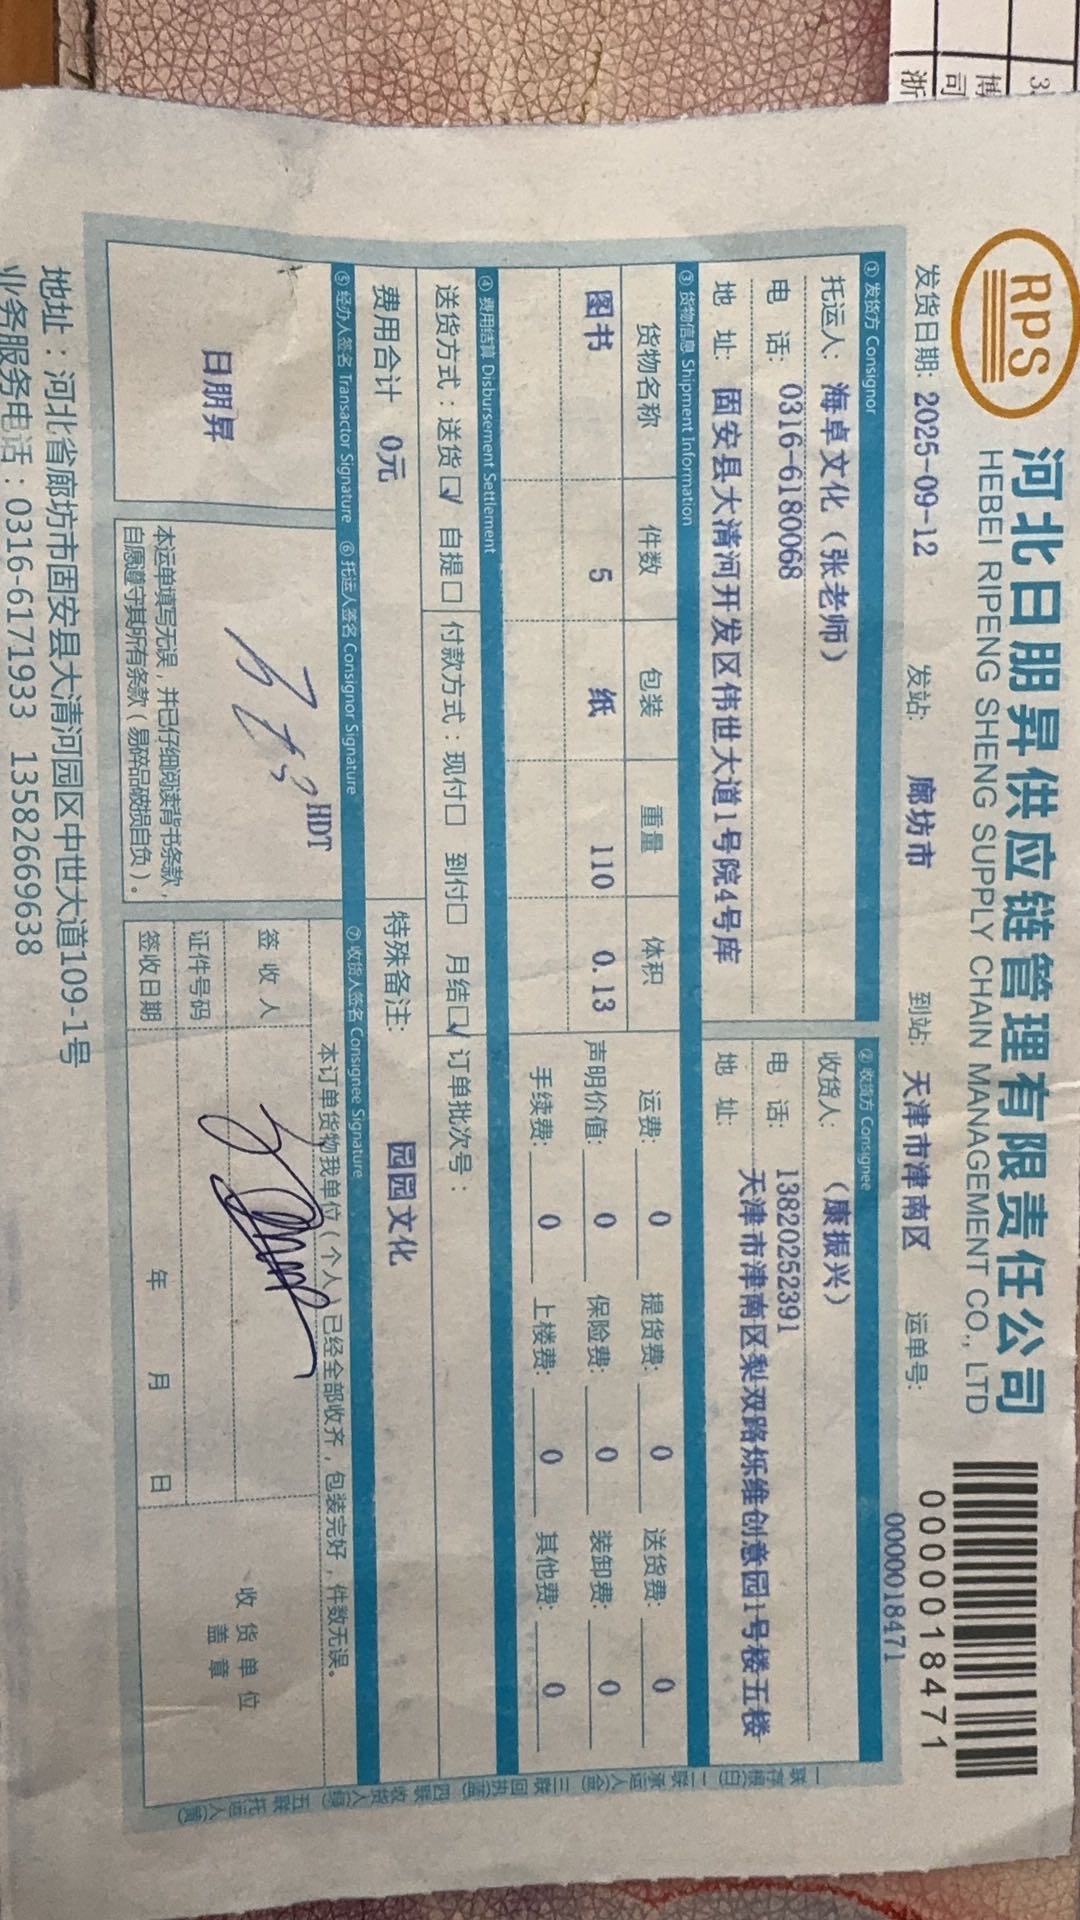 RPS
河北日朋昇供应链管理有限责任公司
HEBEI RIPENG SHENG SUPPLY CHAIN MANAGEMENT CO., LTD
0000018471
0000018471
发货日期: 2025-09-12 发站: 廊坊市 到站: 天津市津南区 运单号:
① 发货方 Consignor ② 收货方 Consignee
托运人: 海卓文化（张老师） 收货人: （康振兴）
电 话: 0316-6180068 电 话: 13820252391
地 址: 固安县大清河开发区伟世大道1号院4号库 地 址: 天津市津南区梨双路烁维创意园1号楼五楼
③ 货物信息 Shipment Information
货物名称 件数 包装 重量 体积 运费: 0 提货费: 0 送货费: 0
图书 5 纸 110 0.13 声明价值: 0 保险费: 0 装卸费: 0
手续费: 0 上楼费: 0 其他费: 0
④ 费用结算 Disbursement Settlement
送货方式：送货☑ 自提□ 付款方式：现付□ 到付□ 月结☑ 订单批次号：
费用合计 0元 特殊备注: 园园文化
⑤ 经办人签名 Transactor Signature ⑥ 托运人签名 Consignor Signature ⑦ 收货人签名 Consignee Signature
日朋昇
HDT
本运单填写无误，并已仔细阅读背书条款，
自愿遵守其所有条款（易碎品破损自负）。
本订单货物我单位（个人）已经全部收齐，包装完好，件数无误。
签 收 人
证件号码
签收日期 年 月 日
收 货 单 位
盖 章
一联存根(白) 二联承运人(金) 三联回执(蓝) 四联收货人(绿) 五联托运人(黄)
地址：河北省廊坊市固安县大清河园区中世大道109-1号
业务服务电话：0316-6171933 13582669638
博
司
浙